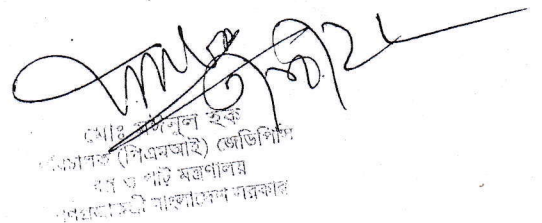 মোঃ মইনুল হক
পরিচালক (পিএমআই) জেডিপিসি
বস্ত্র ও পাট মন্ত্রণালয়
গণপ্রজাতন্ত্রী বাংলাদেশ সরকার